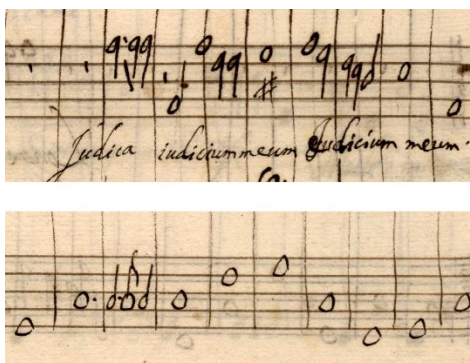 Judica iudicium meum Judicium meum